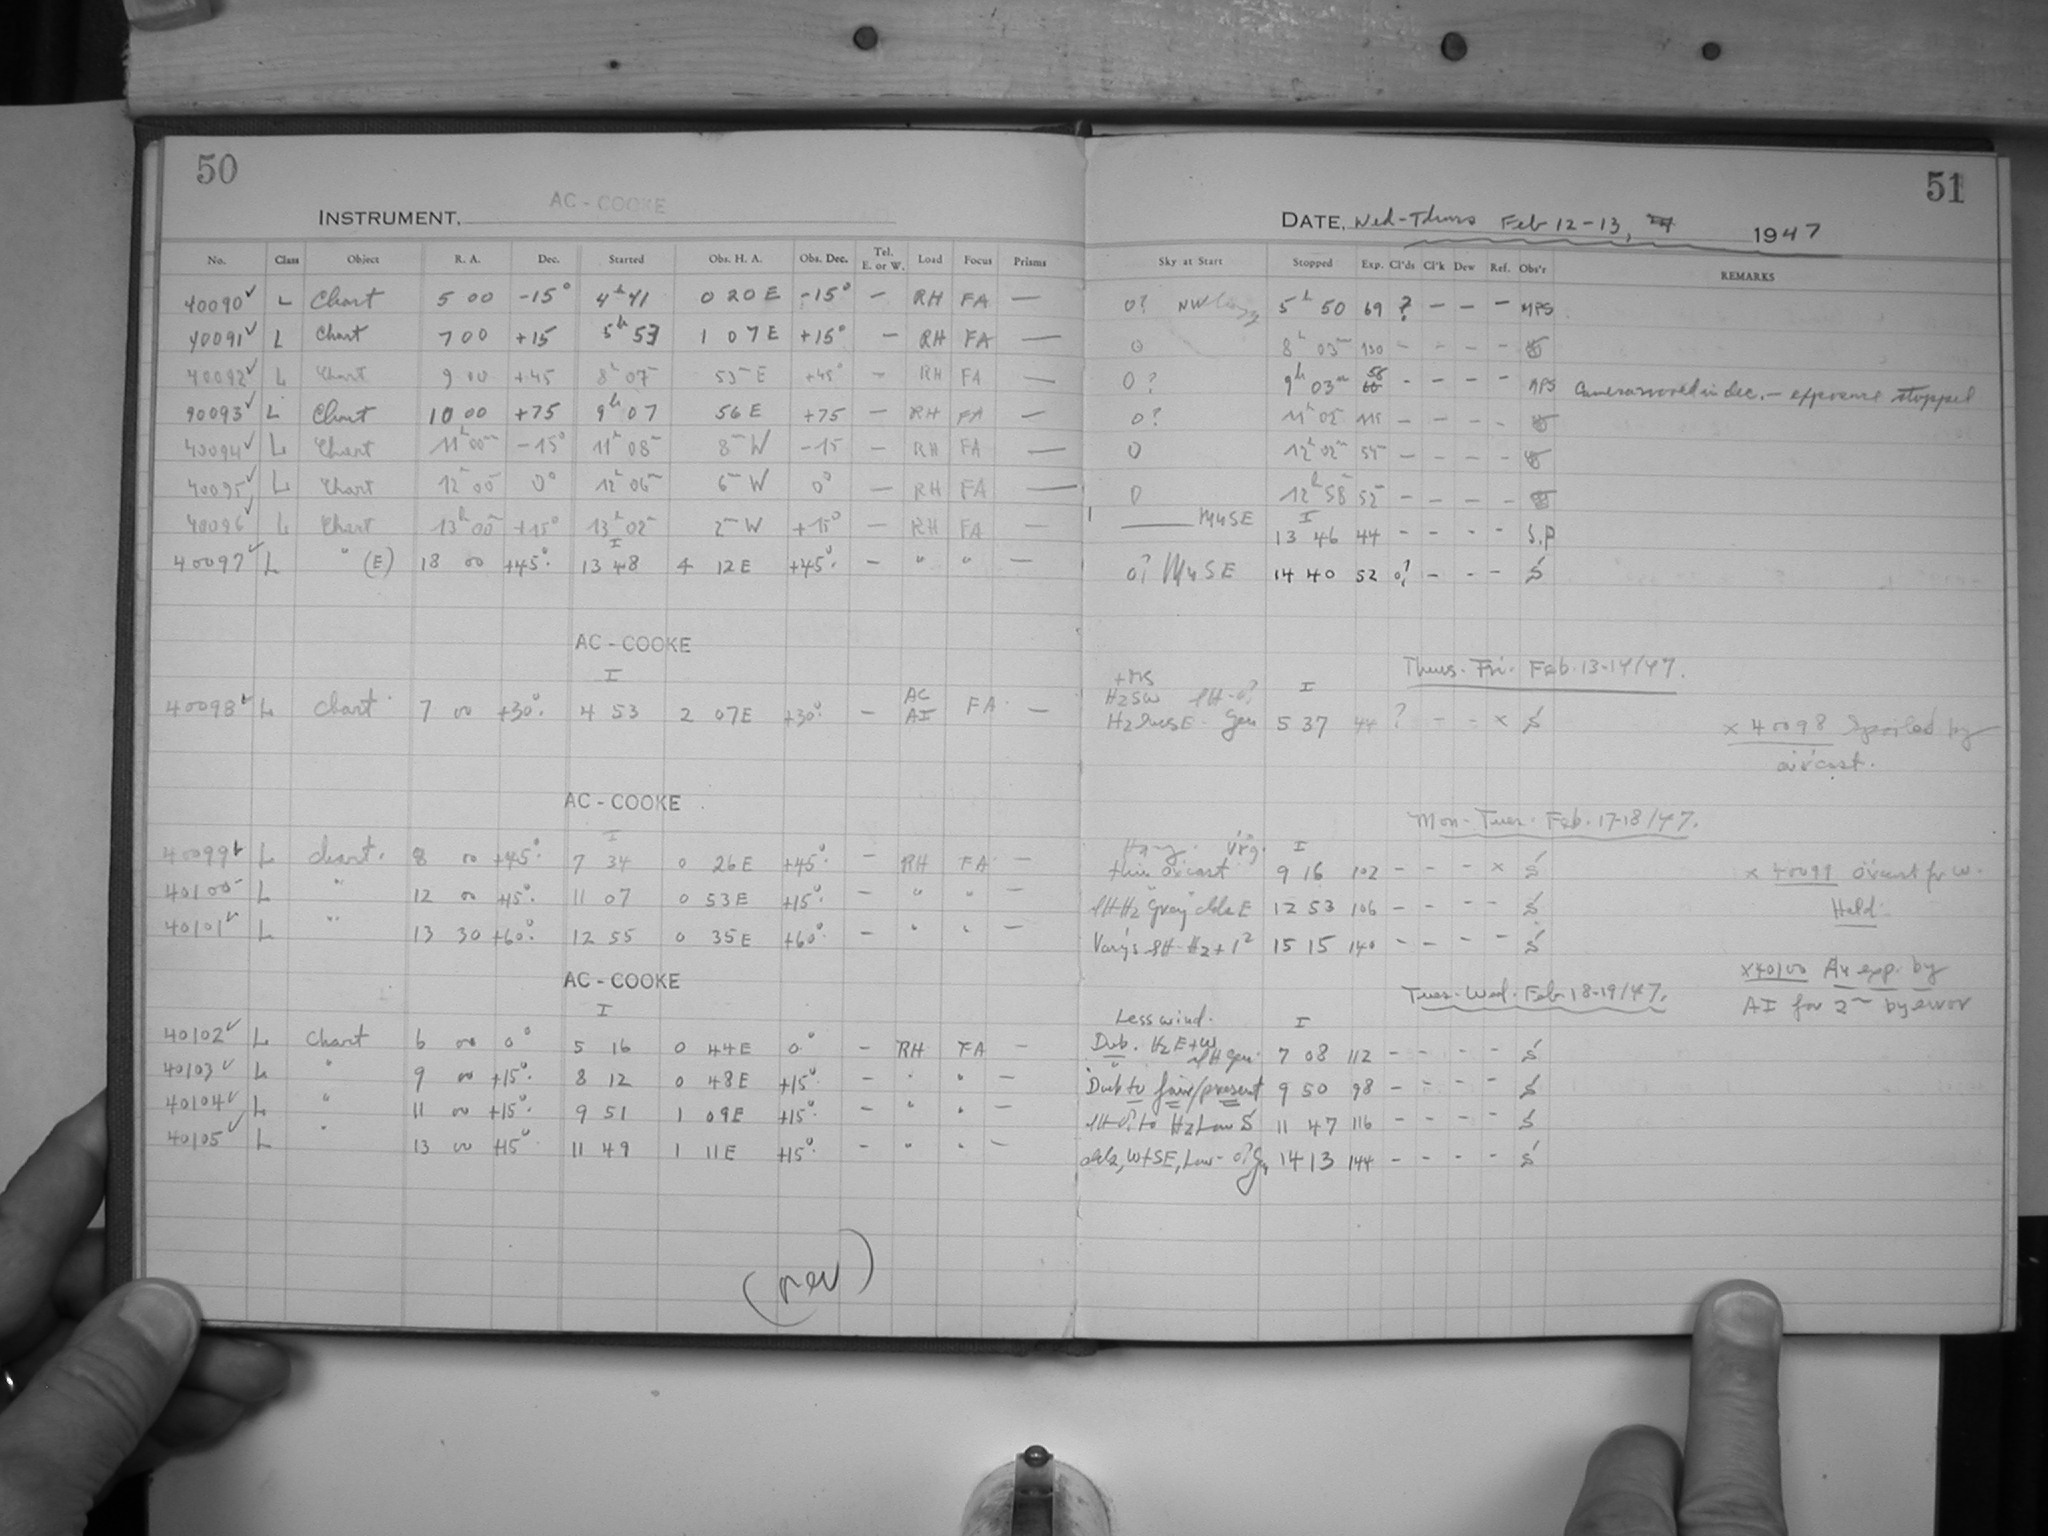 50
INSTRUMENT. AC - COOKE
No. Class Object R. A. Dec. Started Obs. H. A. Obs. Dec. Tel. E. or W. Load Focus Prisms
40090 L Chart 5 00 -15° 4h 41 0 20 E -15° — RH FA —
40091 L Chart 7 00 +15 5h 53 1 07 E +15° — RH FA —
40092 L Chart 9 00 +45 8h 07 53m E +45° — RH FA —
40093 L Chart 10 00 +75 9h 07 56 E +75 — RH FA —
40094 L Chart 11h 00m -15° 11h 08m 8m W -15 — RH FA —
40095 L Chart 12 00 0° 12h 06m 6m W 0° — RH FA —
40096 L Chart 13h 00m +15° 13h 02m 2m W +15° — RH FA —
I
40097 L " (E) 18 00 +45° 13 48 4 12 E +45° — " " —
AC - COOKE
I
40098 L Chart 7 00 +30° 4 53 2 07E +30° — AC AI FA —
AC - COOKE
I
40099 L Chart 8 00 +45° 7 34 0 26E +45° — RH FA —
40100 L " 12 00 +15° 11 07 0 53E +15° — " " —
40101 L " 13 30 +60° 12 55 0 35E +60° — " " —
AC - COOKE
I
40102 L Chart 6 00 0° 5 16 0 44E 0° — RH FA —
40103 L " 9 00 +15° 8 12 0 48E +15° — " " —
40104 L " 11 00 +15° 9 51 1 09E +15° — " " —
40105 L " 13 00 +15° 11 49 1 11E +15° — " " —
(rev)
51
DATE, Wed-Thurs Feb 12-13, 1947
Sky at Start Stopped Exp. Cl'ds Cl'k Dew Ref. Obs'r REMARKS
0? NW 5h 50 69 ? — — — MPS
0 8h 03m 130 — — — —
0? 9h 03m 56 — — — — MPS Camera moved in dec. — exposure stopped
0? 11h 02 115 — — — —
0 12h 02m 54 — — — —
0 12h 58 52 — — — —
MWSE I
13 46 44 — — — — S.P
0? MWSE 14 40 52 0? — — — S
Thurs. Fri. Feb. 13-14/47.
+ MS
H2SW SH-0? I
H2 SE. Gen 5 37 44 ? — — × S
× 40098 Spoiled by
o'cast.
Mon-Tues. Feb. 17-18/47.
Hazy. Vrg. I
thin o'cast 9 16 102 — — — × S
× 40099 o'cast for W.
Held.
SH H2 Gray clds E 12 53 106 — — — — S
Vary'g SH H2 + 1² 15 15 140 — — — — S
×40100 Ax exp. by
AI for 2m by error
Tues-Wed. Feb 18-19/47.
Less wind. I
Dub. H2 E+W SH gen. 7 08 112 — — — — S
Dub to fair/present 9 50 98 — — — — S
SH 0? to H2 Low S 11 47 116 — — — — S
clds, W+SE, Low- 0? 14 13 144 — — — — S